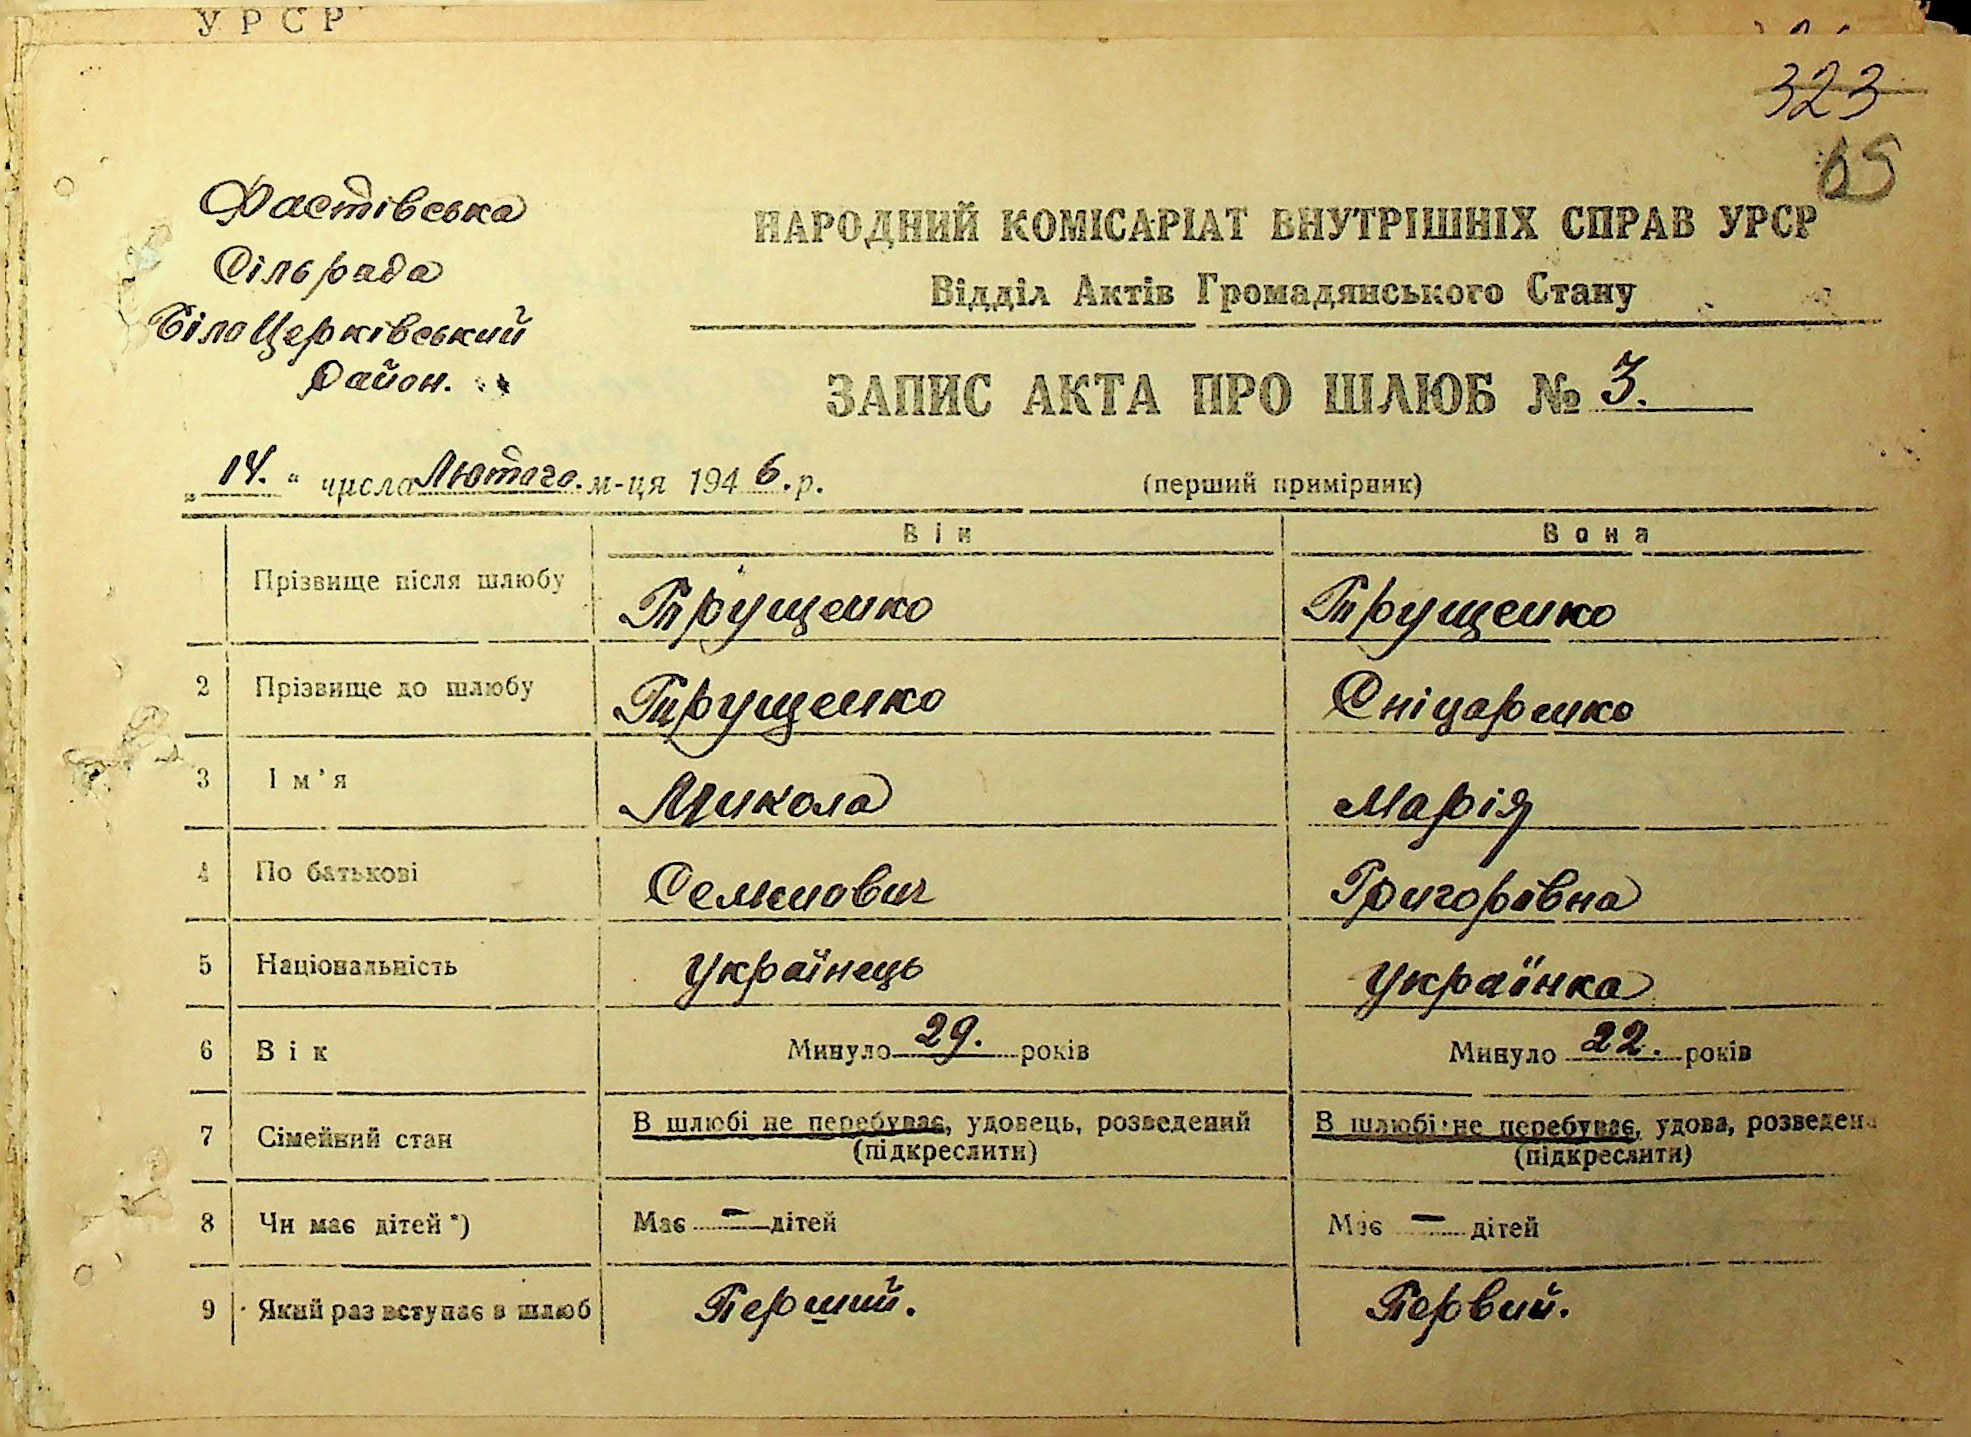 УРСР
323
65
Фастівська
Сільрада
БілоЦерківський
Район.
НАРОДНИЙ КОМІСАРІАТ ВНУТРІШНІХ СПРАВ УРСР
Відділ Актів Громадянського Стану
ЗАПИС АКТА ПРО ШЛЮБ № 3.
„14." числа Лютого. м-ця 1946. р. (перший примірник)
Він Вона
Прізвище після шлюбу Трущенко Трущенко
2 Прізвище до шлюбу Трущенко Сніцаренко
3 Ім'я Микола Марія
4 По батькові Семенович Григорівна
5 Національність Українець Українка
6 Вік Минуло 29. років Минуло 22. років
7 Сімейний стан В шлюбі не перебуває, удовець, розведений В шлюбі не перебуває, удова, розведена
(підкреслити) (підкреслити)
8 Чи має дітей *) Має — дітей Має — дітей
9 Який раз вступає в шлюб Перший. Первий.